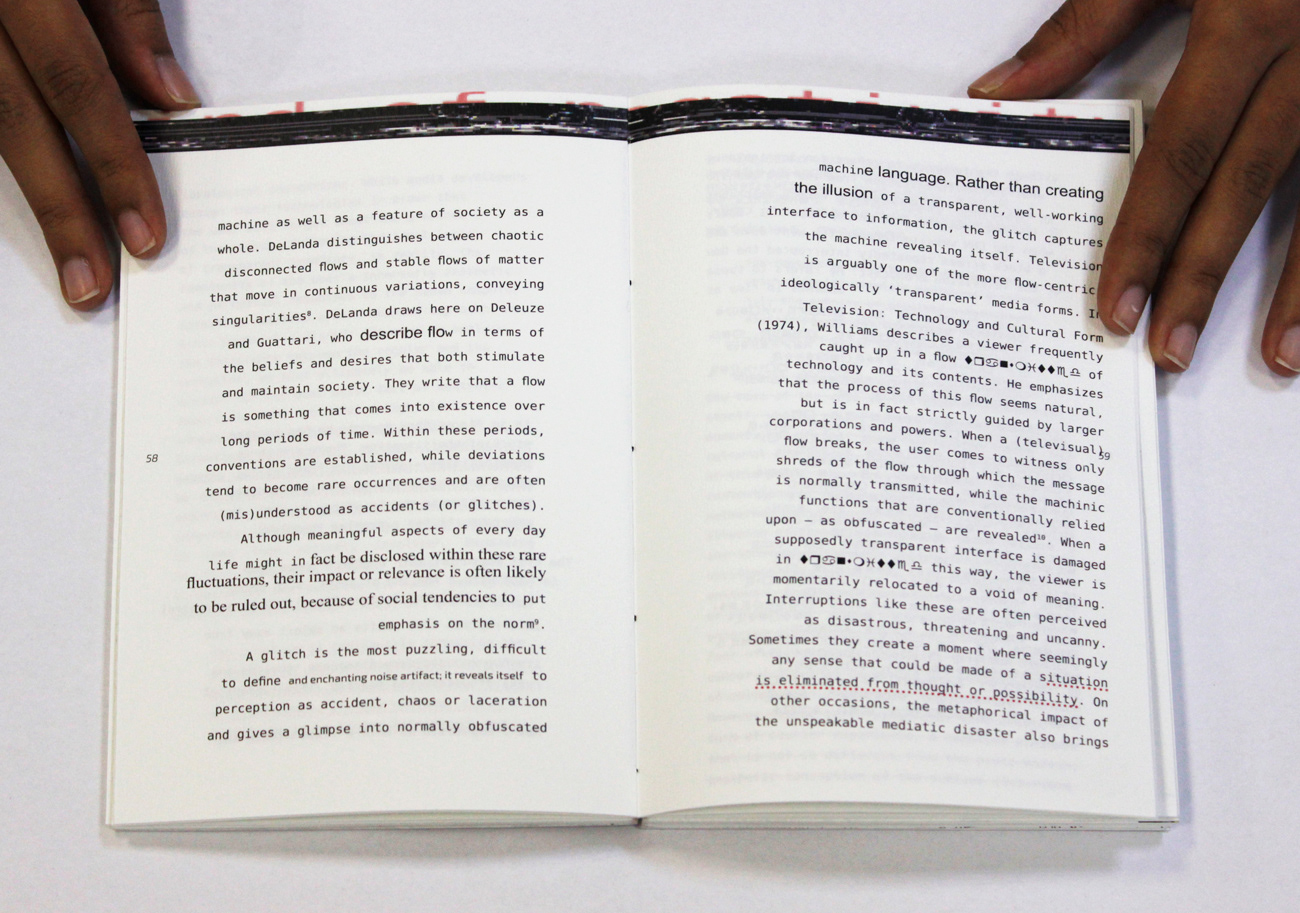 machine as well as a feature of society as a
whole. DeLanda distinguishes between chaotic
disconnected flows and stable flows of matter
that move in continuous variations, conveying
singularities⁸. DeLanda draws here on Deleuze
and Guattari, who describe flow in terms of
the beliefs and desires that both stimulate
and maintain society. They write that a flow
is something that comes into existence over
long periods of time. Within these periods,
conventions are established, while deviations
tend to become rare occurrences and are often
(mis)understood as accidents (or glitches).
Although meaningful aspects of every day
life might in fact be disclosed within these rare
fluctuations, their impact or relevance is often likely
to be ruled out, because of social tendencies to put
emphasis on the norm⁹.
A glitch is the most puzzling, difficult
to define and enchanting noise artifact; it reveals itself to
perception as accident, chaos or laceration
and gives a glimpse into normally obfuscated
58
machine language. Rather than creating
the illusion of a transparent, well-working
interface to information, the glitch captures
the machine revealing itself. Television
is arguably one of the more flow-centric,
ideologically ‘transparent’ media forms. In
Television: Technology and Cultural Form
(1974), Williams describes a viewer frequently
caught up in a flow ♦❒♋■⬧❍♓♦♦♏♎ of
technology and its contents. He emphasizes
that the process of this flow seems natural,
but is in fact strictly guided by larger
corporations and powers. When a (televisual)
flow breaks, the user comes to witness only
shreds of the flow through which the message
is normally transmitted, while the machinic
functions that are conventionally relied
upon – as obfuscated – are revealed¹⁰. When a
supposedly transparent interface is damaged
in ♦❒♋■⬧❍♓♦♦♏♎ this way, the viewer is
momentarily relocated to a void of meaning.
Interruptions like these are often perceived
as disastrous, threatening and uncanny.
Sometimes they create a moment where seemingly
any sense that could be made of a situation
is eliminated from thought or possibility. On
other occasions, the metaphorical impact of
the unspeakable mediatic disaster also brings
59